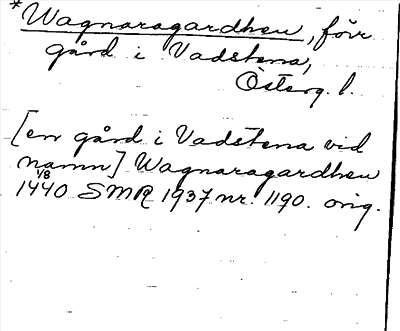 *Wagnaragardhen, förr
gård i Vadstena,
Österg. l.
[en gård i Vadstena vid
namn] Wagnaragardhen
1/8
1440 SMR 1937 nr. 1190. orig.